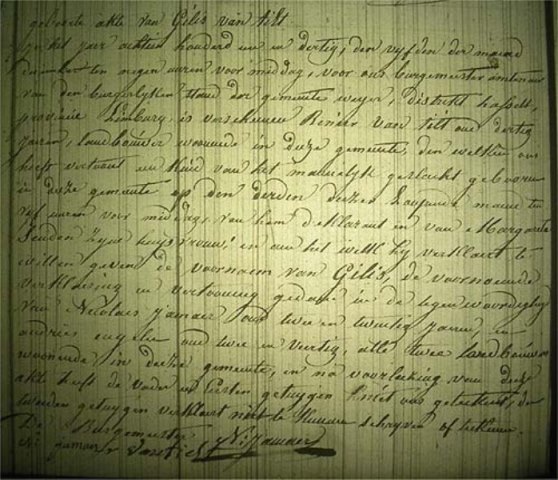 geboorte akte van Gilis van tilt
in het jaar achtien honderd een en dertig, den vyfden der maend
ten negen uuren voor middag, voor ons burgemeester amtenaer
van den burgerlyken staed der gemeente weyer, distrikt hasselt,
provincie Limburg, is verschenen Renier van tilt oud dertig
jaeren, landbouwer woonende in deeze gemeente, den welken ons
heeft vertoont een kind van het mannelyk geslacht gebooren
in deeze gemeente op den derden dezer loopende maend ten
vyf uuren voor middag, van hem deklarant en van Margareta
zyne huysvrouw! en aen het welk hy verklaert te
willen geven de voornaem van Gilis, de voornoemde
verklaering en vertooning gedaen in de tegenwoordigheyd
van Nicolaes Jamaer oud twee en twintig Jaeren en
andries oud twee en veertig, alle twee landbouwers
woonende in deeze gemeente, en na voorleezing van deeze
akte heeft de vader en eersten getuygen met ons geteekent, den
tweeden getuygen verklaert niet te kunnen schryven of teekenen.
De Burgemeester
N: Jamaer